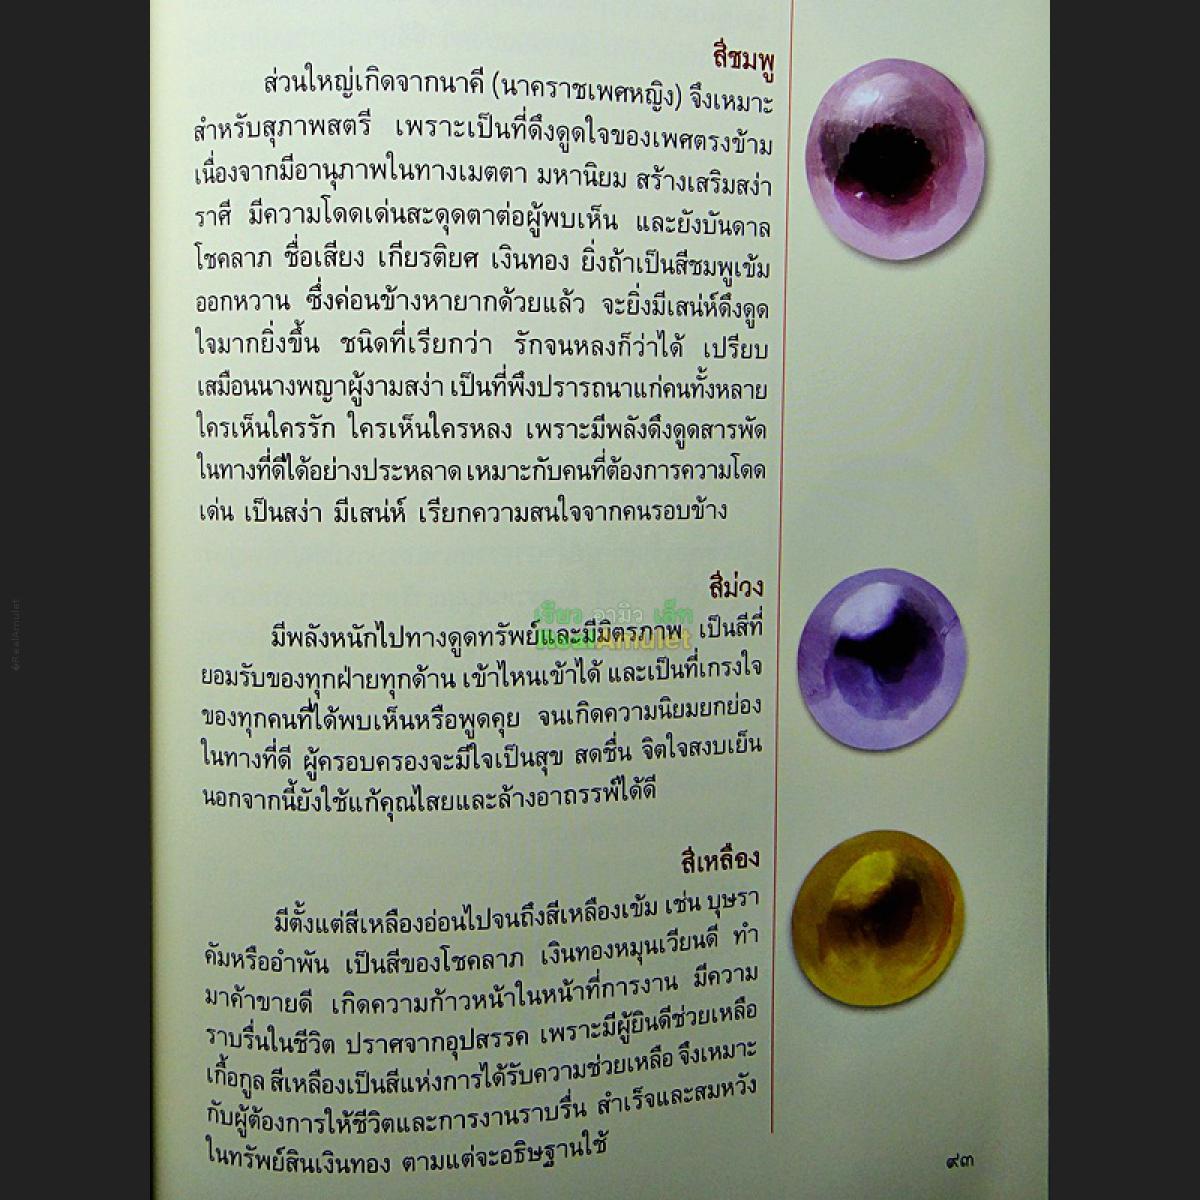 สีชมพู
ส่วนใหญ่เกิดจากนาคี (นาคราชเพศหญิง) จึงเหมาะ
สำหรับสุภาพสตรี เพราะเป็นที่ดึงดูดใจของเพศตรงข้าม
เนื่องจากมีอานุภาพในทางเมตตา มหานิยม สร้างเสริมสง่า
ราศี มีความโดดเด่นสะดุดตาต่อผู้พบเห็น และยังบันดาล
โชคลาภ ชื่อเสียง เกียรติยศ เงินทอง ยิ่งถ้าเป็นสีชมพูเข้ม
ออกหวาน ซึ่งค่อนข้างหายากด้วยแล้ว จะยิ่งมีเสน่ห์ดึงดูด
ใจมากยิ่งขึ้น ชนิดที่เรียกว่า รักจนหลงก็ว่าได้ เปรียบ
เสมือนนางพญาผู้งามสง่า เป็นที่พึงปรารถนาแก่คนทั้งหลาย
ใครเห็นใครรัก ใครเห็นใครหลง เพราะมีพลังดึงดูดสารพัด
ในทางที่ดีได้อย่างประหลาด เหมาะกับคนที่ต้องการความโดด
เด่น เป็นสง่า มีเสน่ห์ เรียกความสนใจจากคนรอบข้าง
สีม่วง
เรียว อามิว เล็ท
RealAmulet
มีพลังหนักไปทางดูดทรัพย์และมีมิตรภาพ เป็นสีที่
ยอมรับของทุกฝ่ายทุกด้าน เข้าไหนเข้าได้ และเป็นที่เกรงใจ
ของทุกคนที่ได้พบเห็นหรือพูดคุย จนเกิดความนิยมยกย่อง
ในทางที่ดี ผู้ครอบครองจะมีใจเป็นสุข สดชื่น จิตใจสงบเย็น
นอกจากนี้ยังใช้แก้คุณไสยและล้างอาถรรพ์ได้ดี
สีเหลือง
มีตั้งแต่สีเหลืองอ่อนไปจนถึงสีเหลืองเข้ม เช่น บุษรา
คัมหรืออำพัน เป็นสีของโชคลาภ เงินทองหมุนเวียนดี ทำ
มาค้าขายดี เกิดความก้าวหน้าในหน้าที่การงาน มีความ
ราบรื่นในชีวิต ปราศจากอุปสรรค เพราะมีผู้ยินดีช่วยเหลือ
เกื้อกูล สีเหลืองเป็นสีแห่งการได้รับความช่วยเหลือ จึงเหมาะ
กับผู้ต้องการให้ชีวิตและการงานราบรื่น สำเร็จและสมหวัง
ในทรัพย์สินเงินทอง ตามแต่จะอธิษฐานใช้
๙๓
©RealAmulet